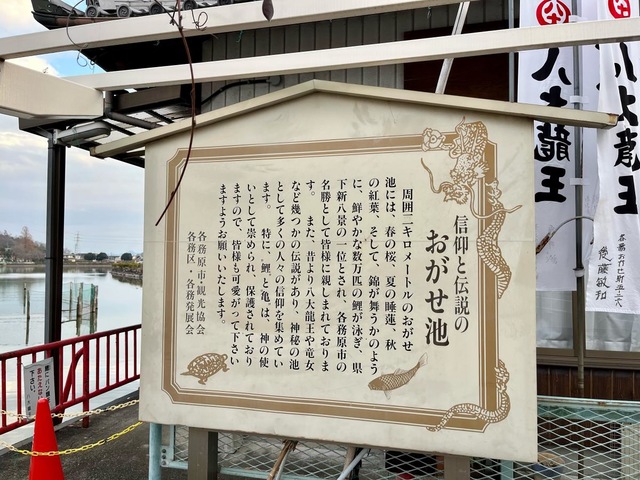 信仰と伝説の
おがせ池
周囲二キロメートルのおがせ
池には、春の桜、夏の睡蓮、秋
の紅葉、そして、錦が舞うかのよう
に、鮮やかな数万匹の鯉が泳ぎ、県
下新八景の一位とされ、各務原市の
名勝として皆様に親しまれておりま
す。また、昔より八大龍王や竜女
など幾つかの伝説があり、神秘の池
として多くの人々の信仰を集めてい
ます。特に、鯉と亀は、神の使
いとして崇められ、保護されており
ますので、皆様も可愛がって下さい
ますようお願いいたします。
各務原市・観光協会
各務区・各務発展会
八大龍王
大龍王
後藤敏和
鯉にパン類を
あたえないで
下さい。